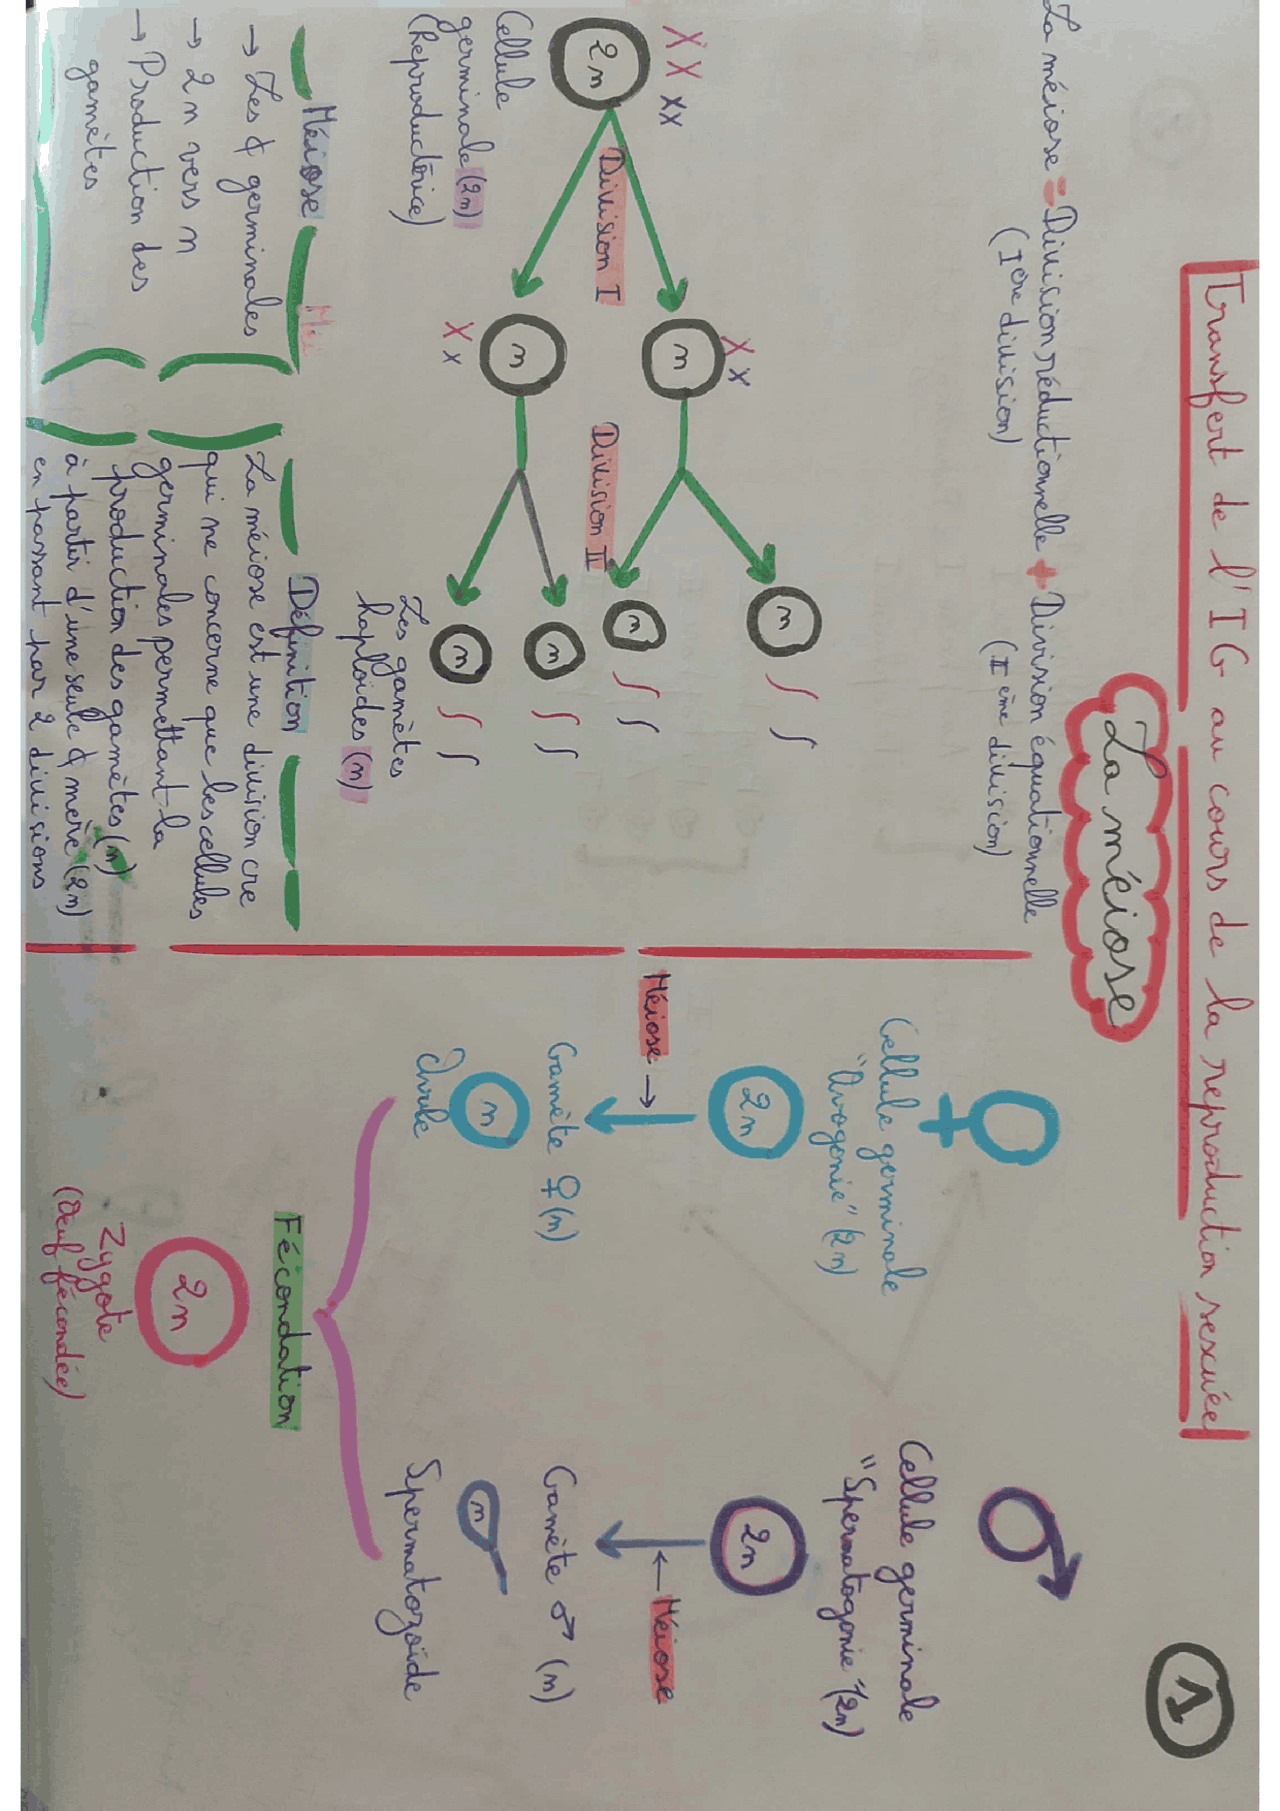 1
Transfert de l'IG au cours de la reproduction sexuée
La méiose
La méiose = Division réductionnelle + Division équationnelle
(Ière division) (IIème division)
XX xx
2n
Division I
Cellule
germinale (2n)
(Reproductrice)
X x
n
X x
n
Division II
n
n
n
n
Les gamètes
haploïdes (n)
Méiose
Méi
→ Les ¢ germinales
→ 2n vers n
→ Production des
gamètes
Définition
La méiose est une division cre
qui ne concerne que les cellules
germinales permettant la
production des gamètes (n)
à partir d'une seule ¢ mère (2n)
en passant par 2 divisions
♀
Cellule germinale
"Ovogonie" (2n)
2n
Méiose →
Gamète ♀ (n)
n
Ovule
♂
Cellule germinale
"Spermatogonie" (2n)
2n
← Méiose
Gamète ♂ (n)
n
Spermatozoïde
Fécondation
2n
Zygote
(Œuf fécondée)